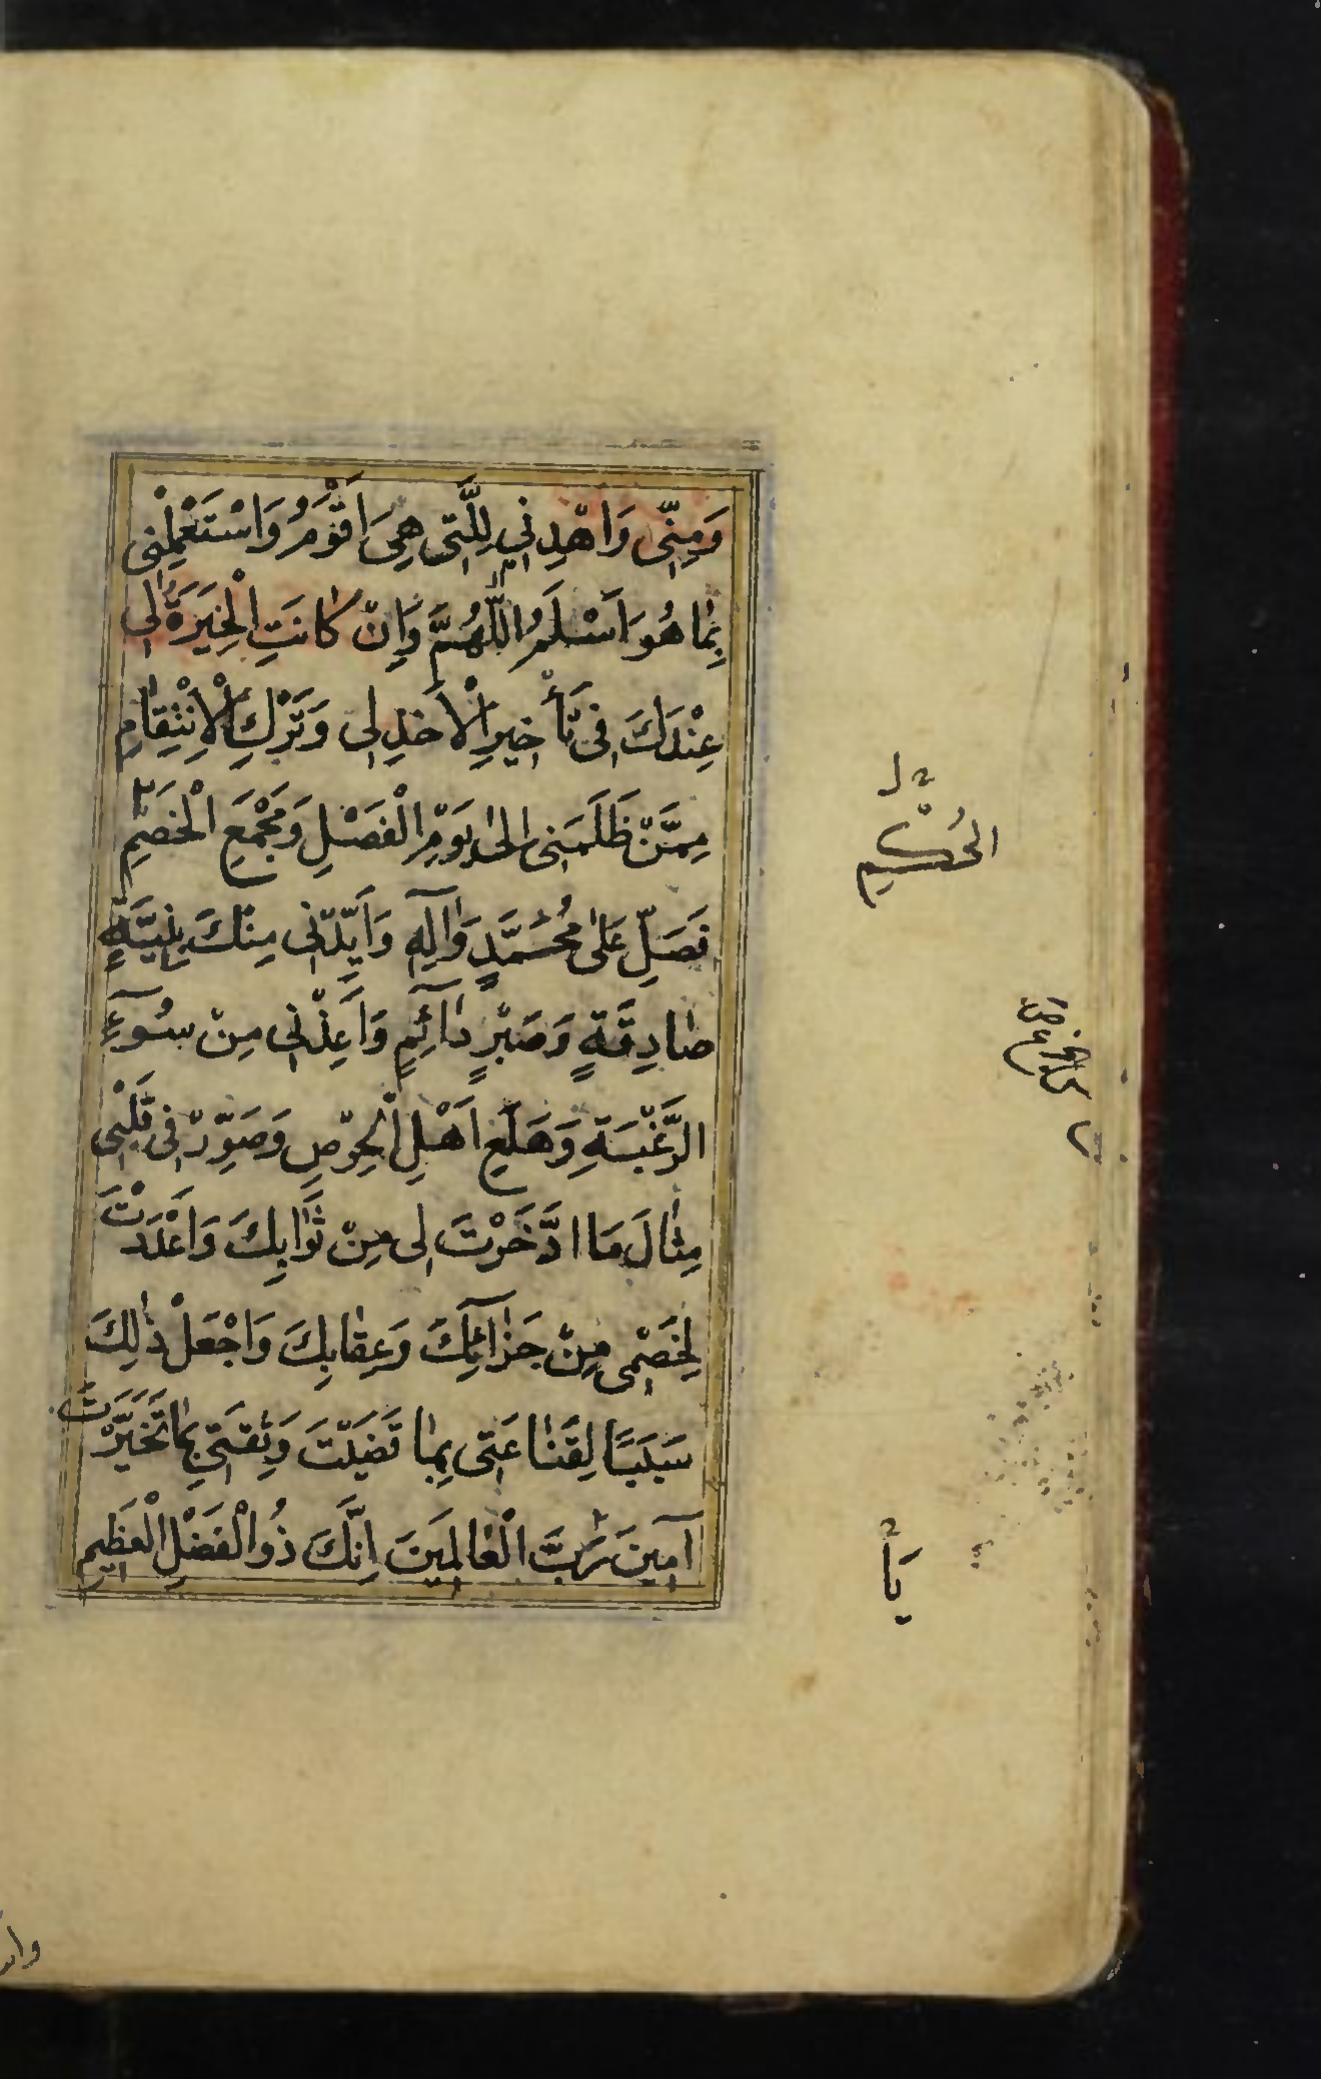 وَمِنِّى وَاهْدِنِى لِلَّتِى هِىَ اَقْوَمُ وَاسْتَعْمِلْنِى
بِمَا هُوَ اَسْلَمُ اللّٰهُمَّ وَاِنْ كَانَتِ الْخِيَرَةُ لِى
عِنْدَكَ فِى تَأْخِيرِ الْاَخْذِ لِى وَتَرْكِ الْاِنْتِقَامِ
مِمَّنْ ظَلَمَنِى اِلىٰ يَوْمِ الْفَصْلِ وَمَجْمَعِ الْخَصْمِ
فَصَلِّ عَلىٰ مُحَمَّدٍ وَآلِهِ وَاَيِّدْنِى مِنْكَ بِنِيَّةٍ
صَادِقَةٍ وَصَبْرٍ دَآئِمٍ وَاَعِذْنِى مِنْ سُوۤءِ
الرَّغْبَةِ وَهَلَعِ اَهْلِ الْحِرْصِ وَصَوِّرْ فِى قَلْبِى
مِثَالَ مَا ادَّخَرْتَ لِى مِنْ ثَوَابِكَ وَاَعْدَدْتَ
لِخَصْمِى مِنْ جَزَآئِكَ وَعِقَابِكَ وَاجْعَلْ ذٰلِكَ
سَبَبًا لِقَنَاعَتِى بِمَا قَضَيْتَ وَثِقَتِى بِمَا تَخَيَّرْتَ
آمِينَ رَبَّ الْعَالَمِينَ اِنَّكَ ذُو الْفَضْلِ الْعَظِيمِ